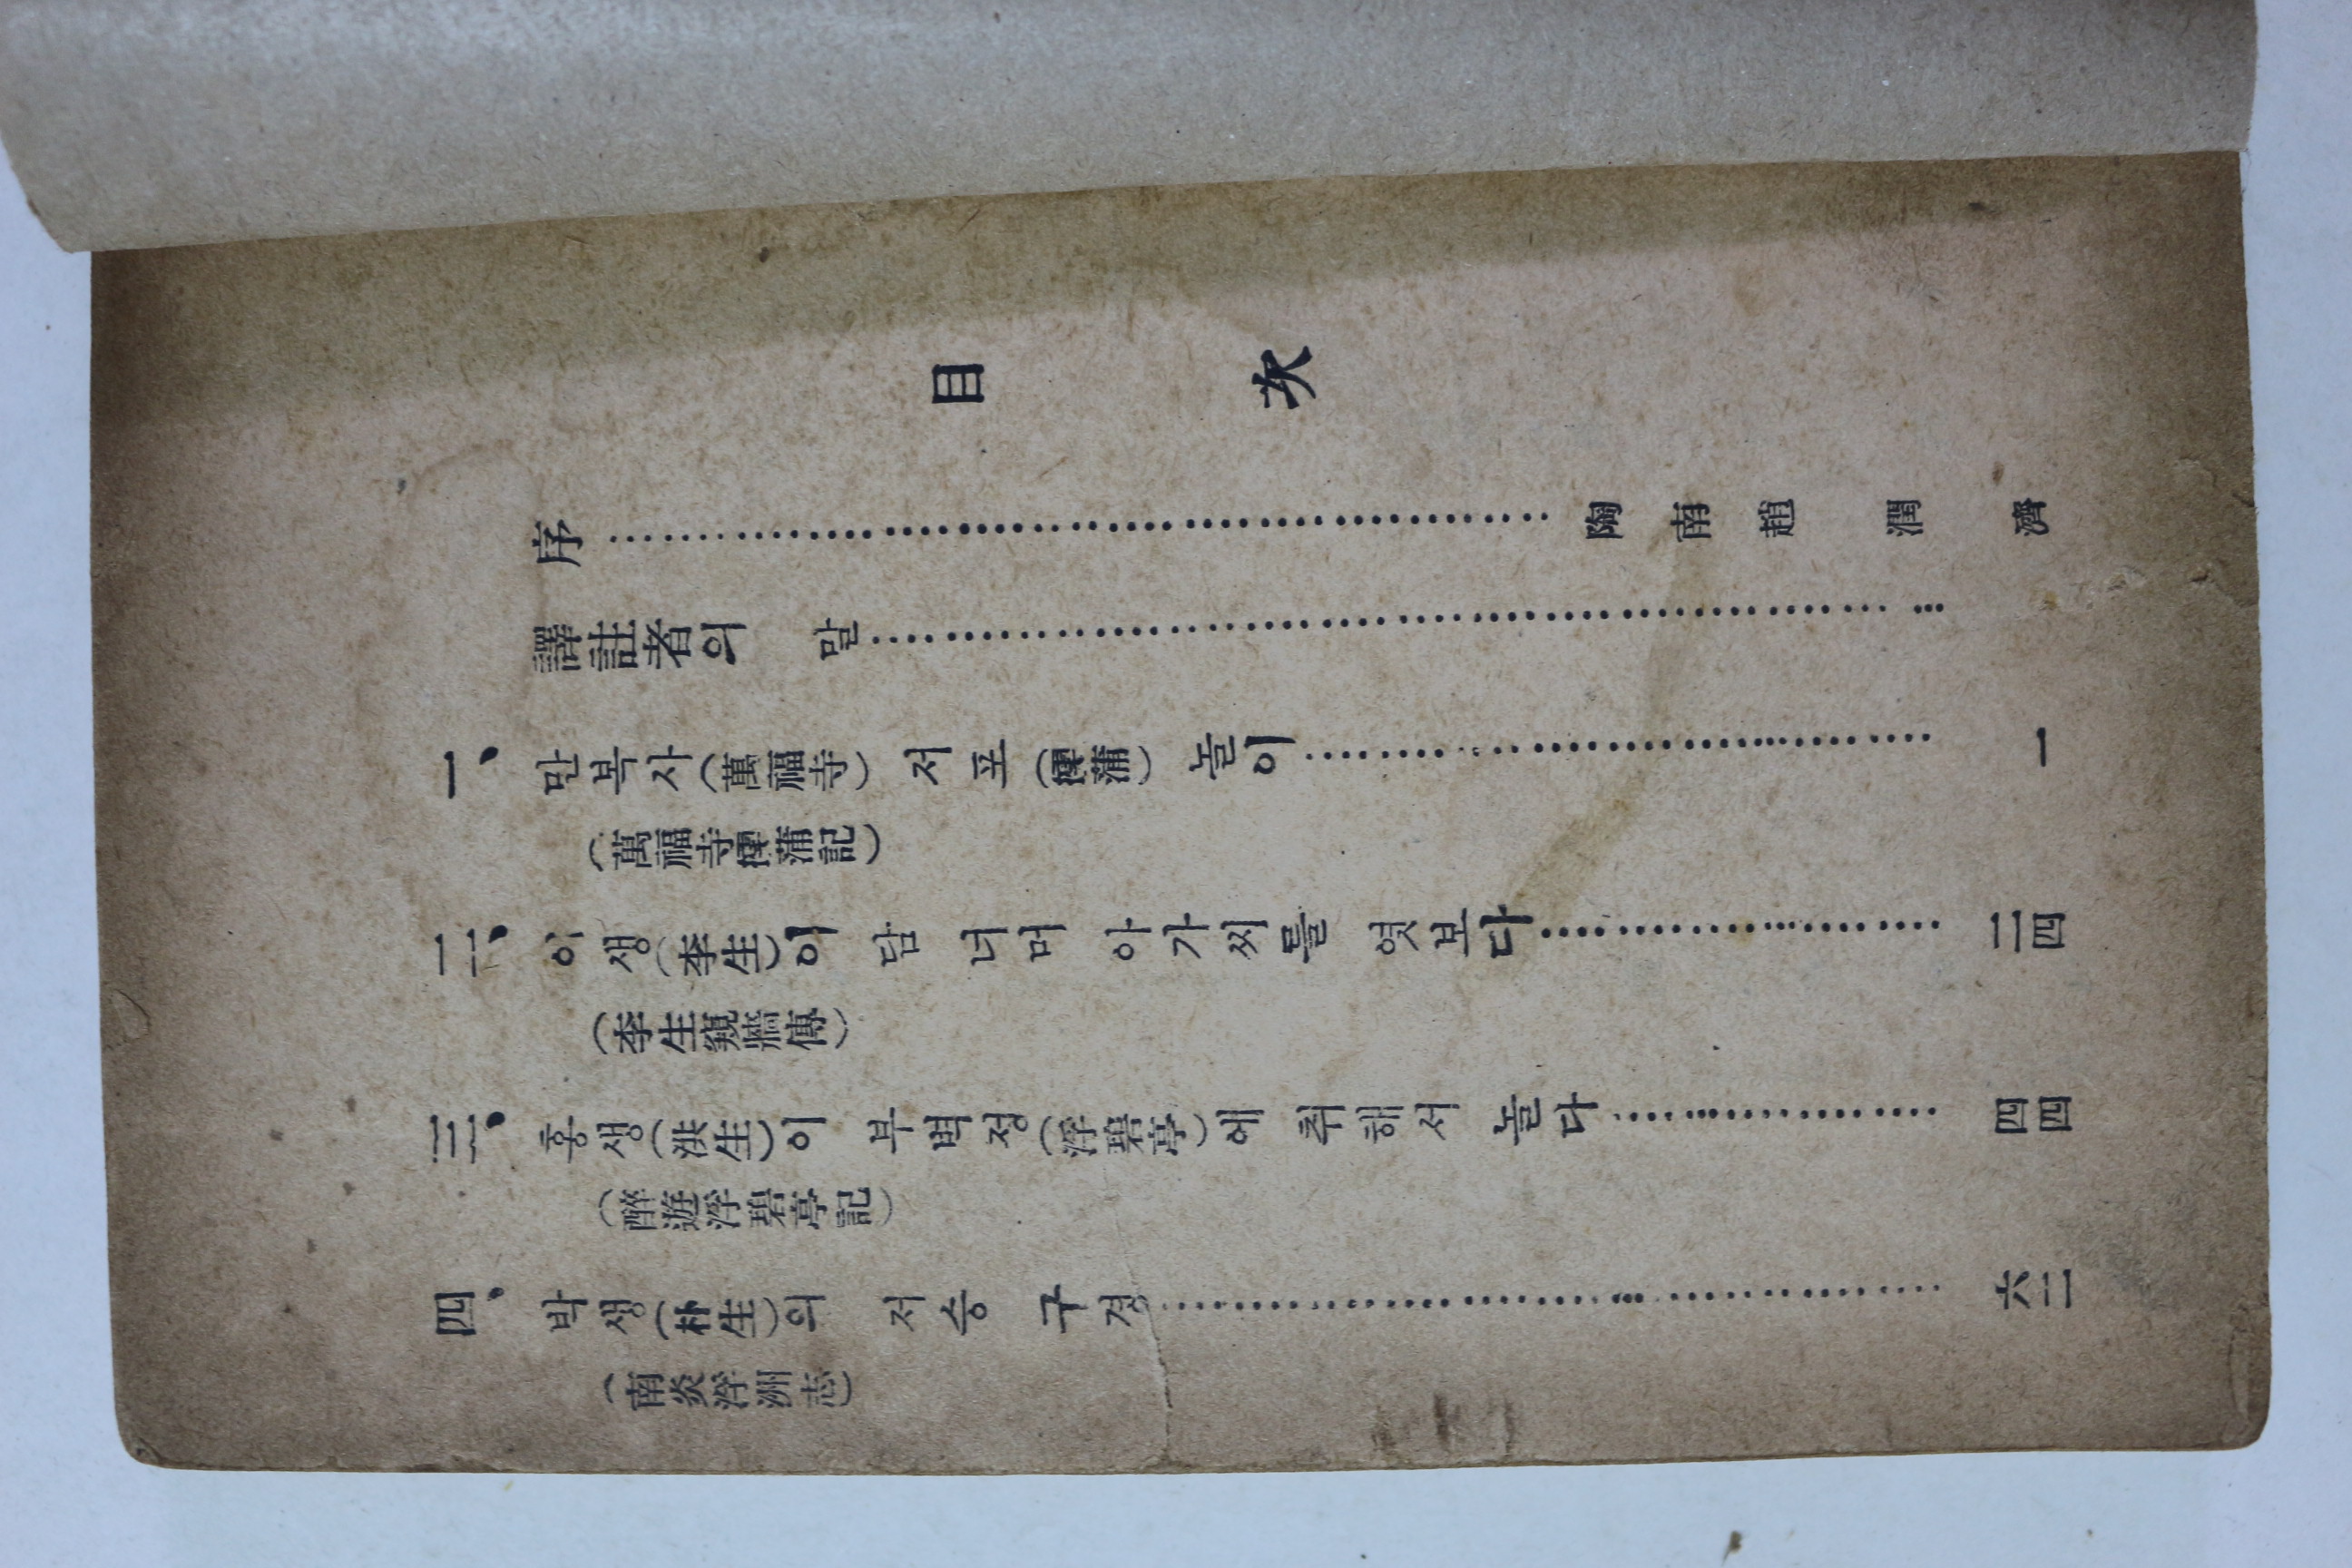 目 次
序……………………陶南 趙 潤 濟
譯註者의 말……………………
一、 만복사(萬福寺) 저포(樗蒲) 놀이……………………一
(萬福寺樗蒲記)
二、 이생(李生)이 담 너머 아가씨를 엿보다……………………二四
(李生窺牆傳)
三、 홍생(洪生)이 부벽정(浮碧亭)에 취해서 놀다……………………四四
(醉遊浮碧亭記)
四、 박생(朴生)의 저승 구경……………………六二
(南炎浮洲志)